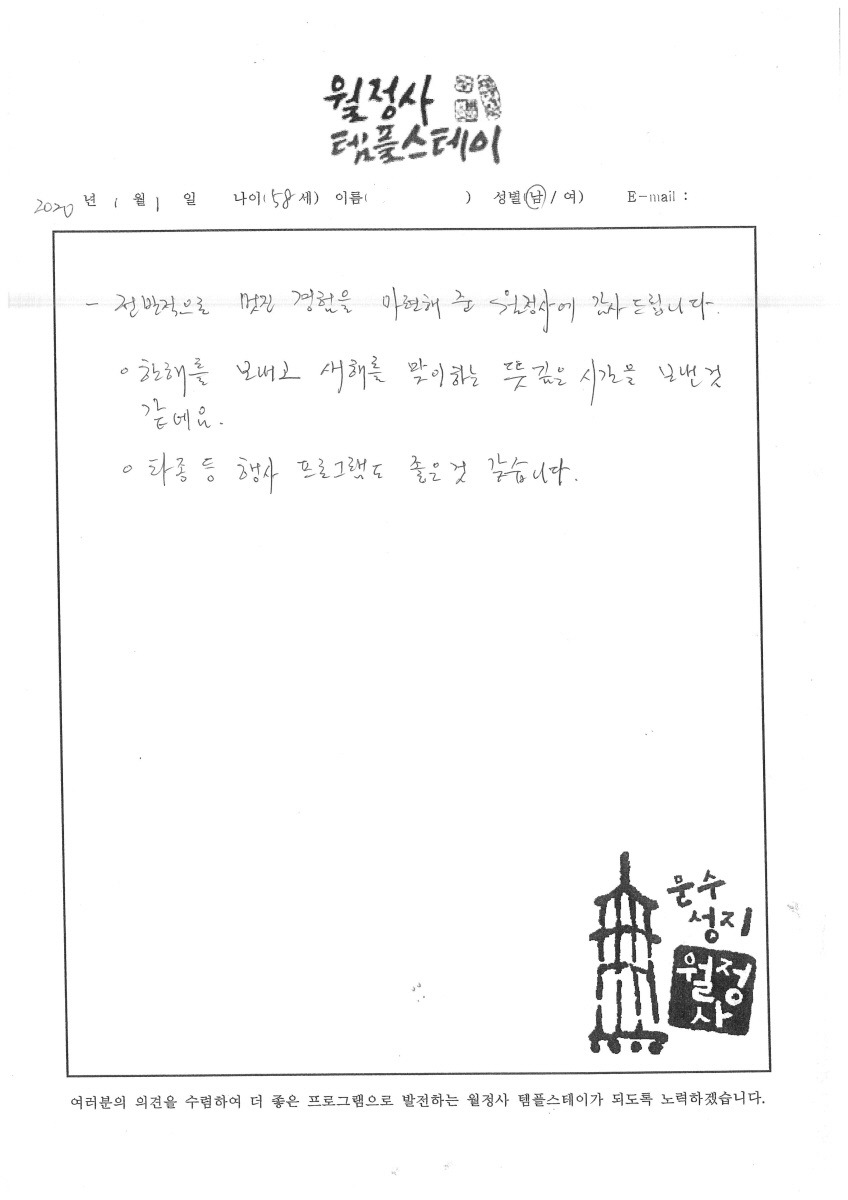 월정사
템플스테이
2020 년 1 월 1 일 나이(58세) 이름( ) 성별(남/여) E-mail :
- 전반적으로 멋진 경험을 마련해 준 월정사에 감사드립니다.
◦ 한해를 보내고 새해를 맞이하는 뜻깊은 시간을 보낸것
같네요.
◦ 타종 등 행사 프로그램도 좋은것 같습니다.
문수
성지
월정
사
여러분의 의견을 수렴하여 더 좋은 프로그램으로 발전하는 월정사 템플스테이가 되도록 노력하겠습니다.